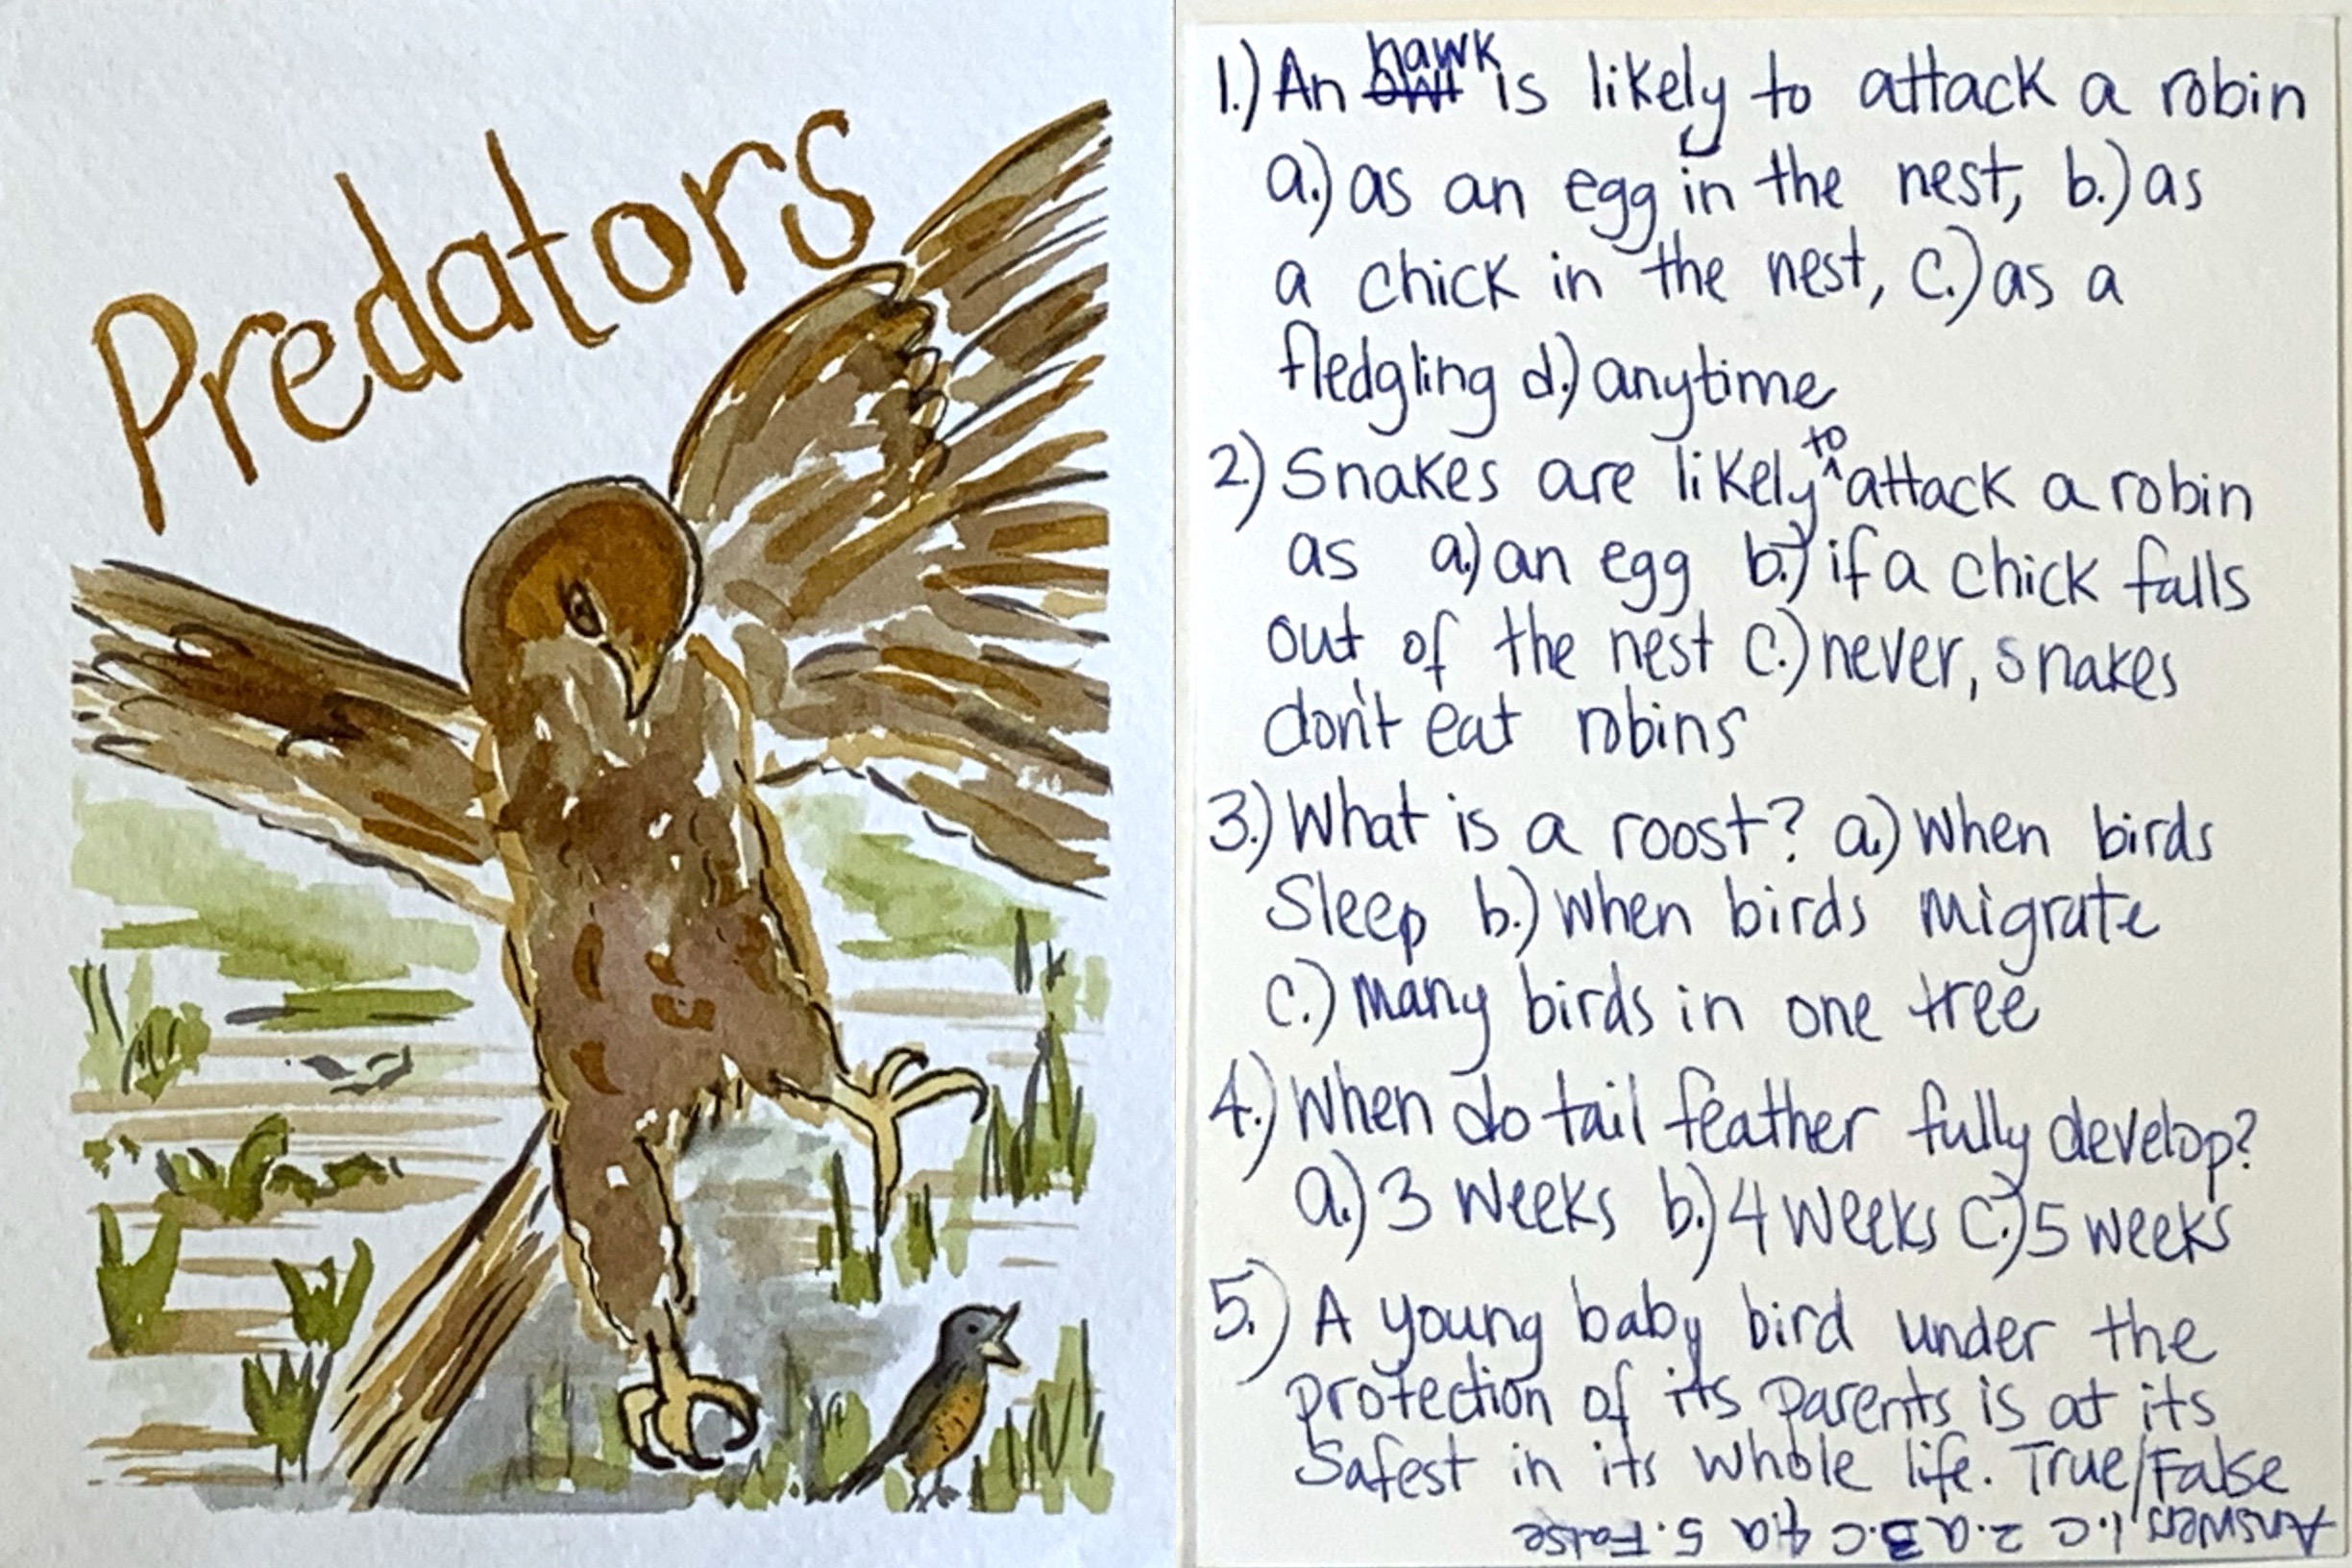 Predators
1.) An owl hawk is likely to attack a robin
a.) as an egg in the nest, b.) as
a chick in the nest, c.) as a
fledgling d.) anytime
2.) Snakes are likely to attack a robin
as a.) an egg b.) if a chick falls
out of the nest c.) never, snakes
don't eat robins
3.) What is a roost? a.) When birds
sleep b.) when birds migrate
c.) many birds in one tree
4.) When do tail feather fully develop?
a.) 3 weeks b.) 4 weeks c.) 5 weeks
5.) A young baby bird under the
protection of its parents is at its
safest in its whole life. True/False
Answers 1. c 2. a 3. c 4. a 5. False